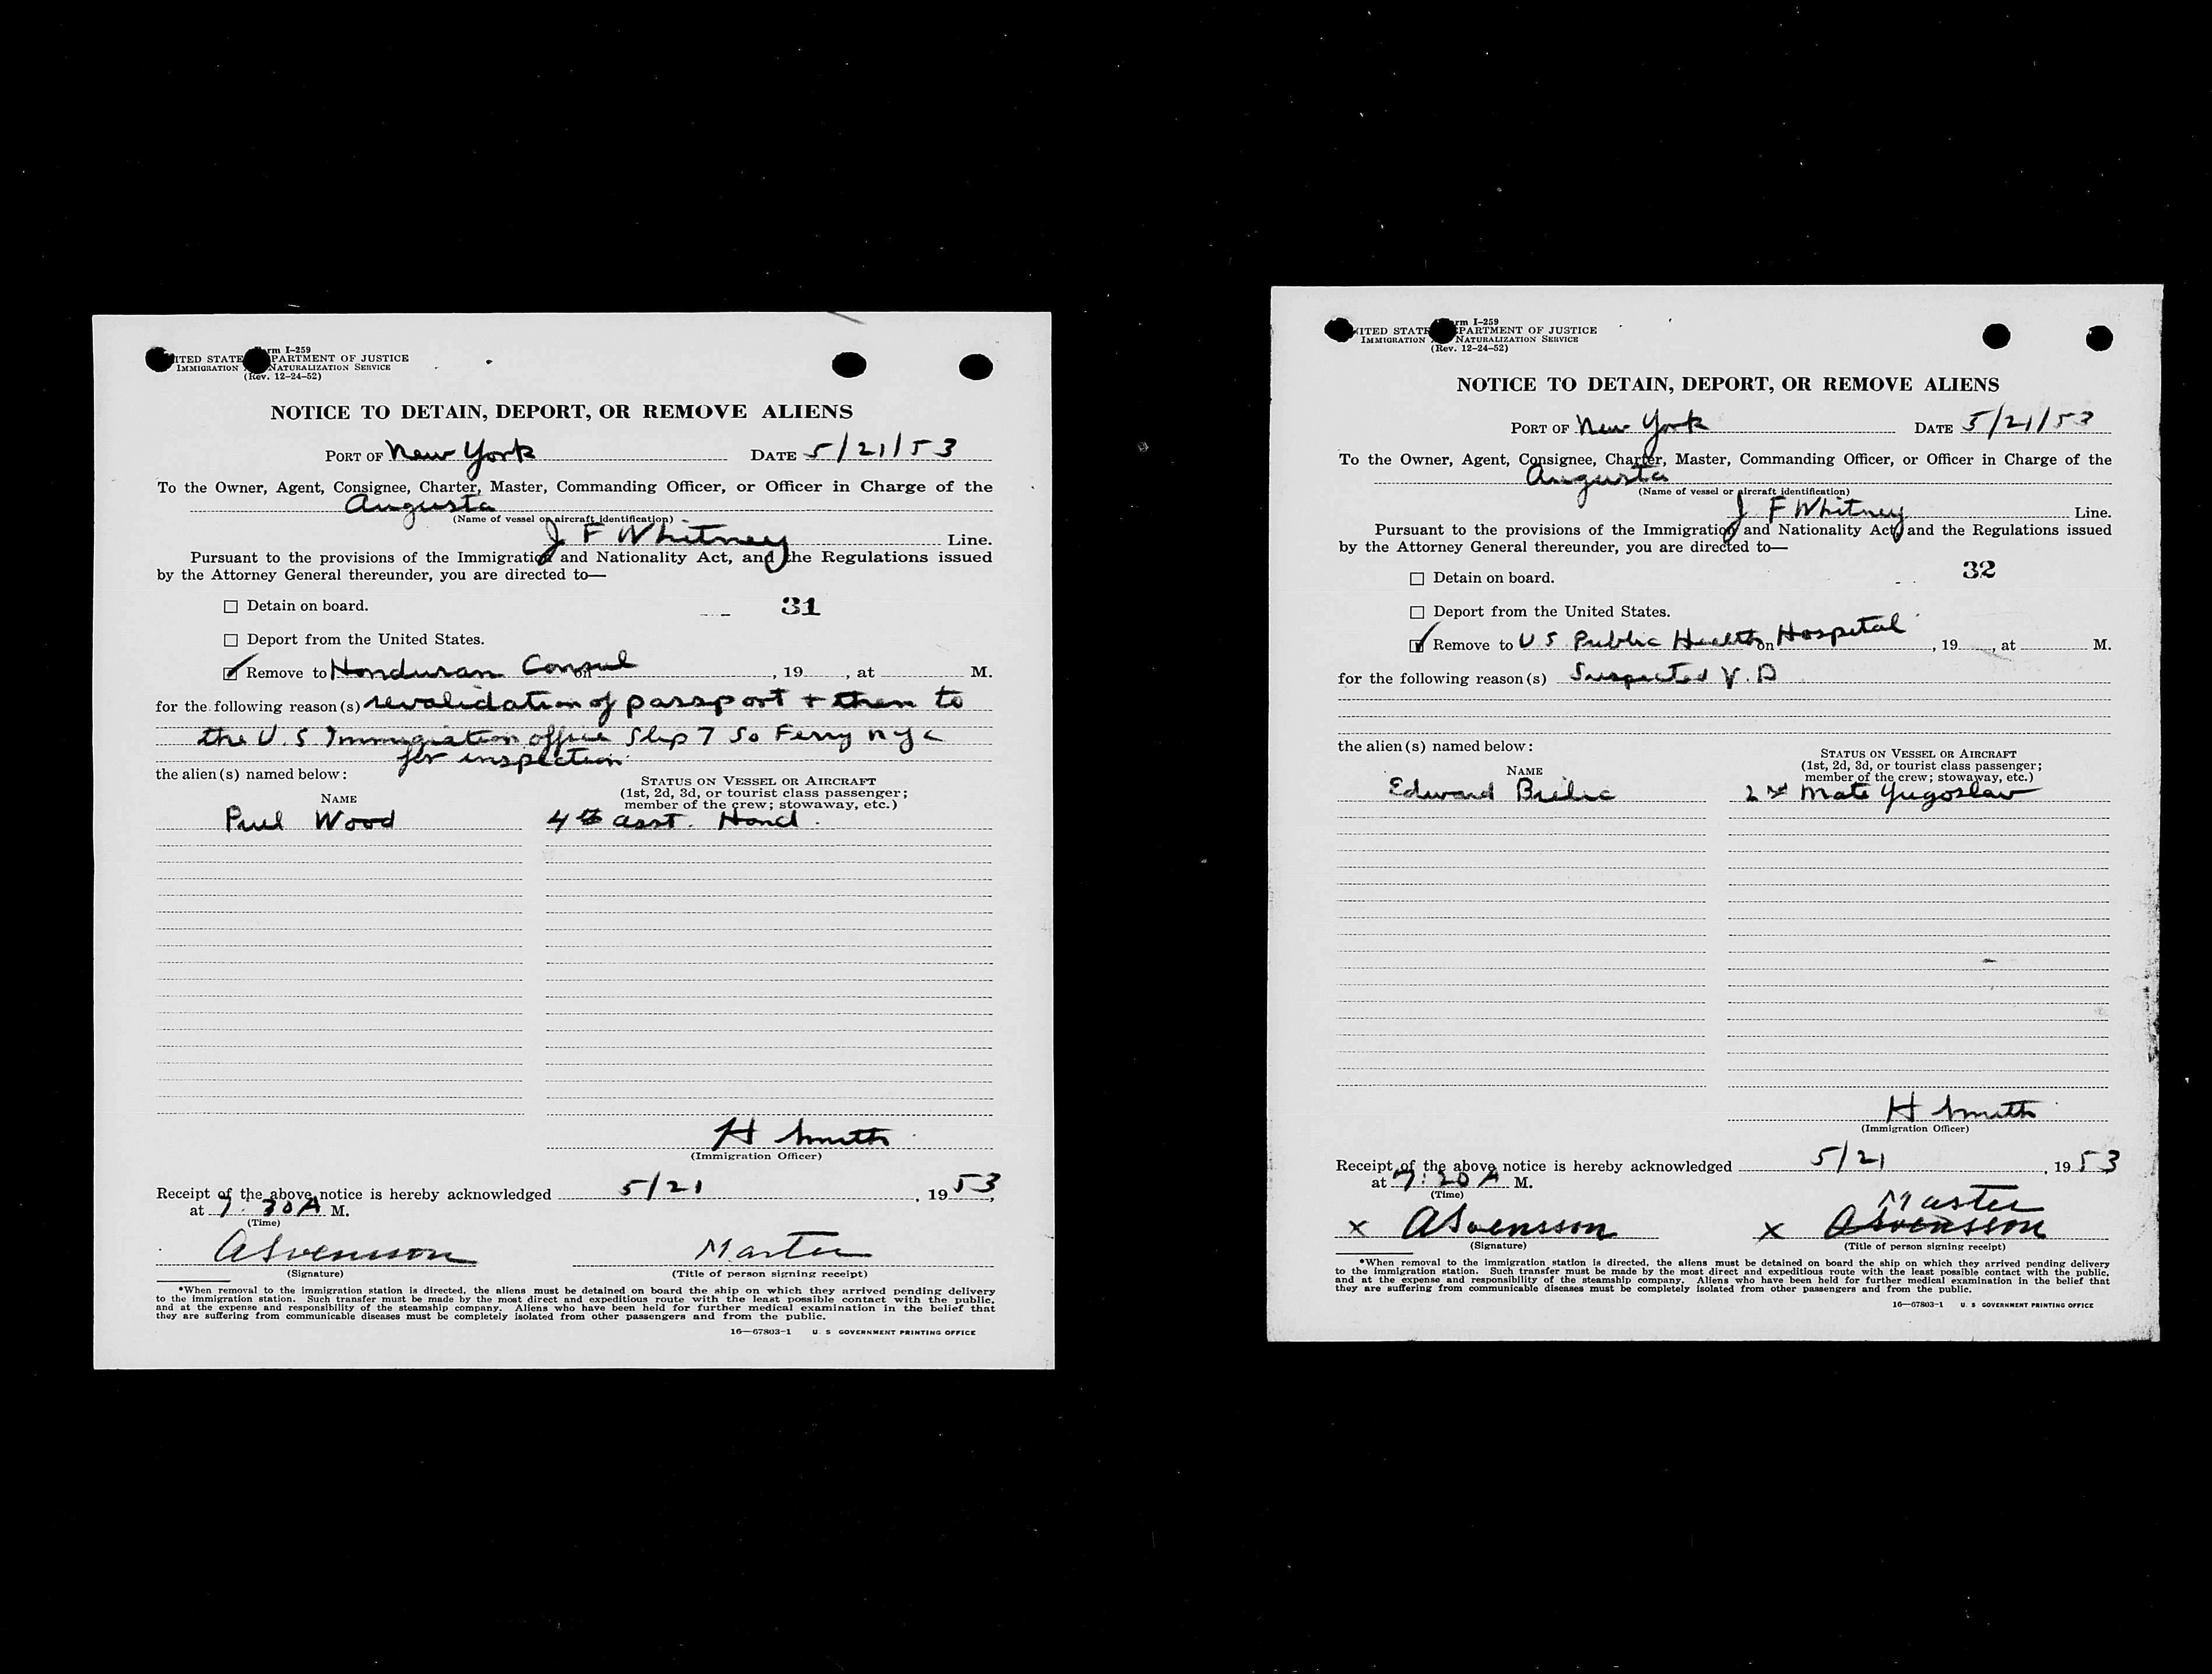 Form I-259
UNITED STATES DEPARTMENT OF JUSTICE
IMMIGRATION AND NATURALIZATION SERVICE
(Rev. 12-24-52)
NOTICE TO DETAIN, DEPORT, OR REMOVE ALIENS
PORT OF New York DATE 5/21/53
To the Owner, Agent, Consignee, Charter, Master, Commanding Officer, or Officer in Charge of the
Augusta
(Name of vessel or aircraft identification)
J F Whitney Line.
Pursuant to the provisions of the Immigration and Nationality Act, and the Regulations issued
by the Attorney General thereunder, you are directed to—
☐ Detain on board. 31
☐ Deport from the United States.
☑ Remove to Honduran Consul on , 19 , at M.
for the following reason(s) revalidation of passport + then to
the U.S Immigration office Slip 7 So Ferry nyc
for inspection
the alien(s) named below:
STATUS ON VESSEL OR AIRCRAFT
(1st, 2d, 3d, or tourist class passenger;
member of the crew; stowaway, etc.)
NAME
Paul Wood 4th asst. Hond.
H Smith
(Immigration Officer)
Receipt of the above notice is hereby acknowledged 5/21, 1953,
at 7:30 A M.
(Time)
ASvensson Master
(Signature) (Title of person signing receipt)
*When removal to the immigration station is directed, the aliens must be detained on board the ship on which they arrived pending delivery
to the immigration station. Such transfer must be made by the most direct and expeditious route with the least possible contact with the public,
and at the expense and responsibility of the steamship company. Aliens who have been held for further medical examination in the belief that
they are suffering from communicable diseases must be completely isolated from other passengers and from the public.
16—67803-1 U. S GOVERNMENT PRINTING OFFICE
Form I-259
UNITED STATES DEPARTMENT OF JUSTICE
IMMIGRATION AND NATURALIZATION SERVICE
(Rev. 12-24-52)
NOTICE TO DETAIN, DEPORT, OR REMOVE ALIENS
PORT OF New York DATE 5/21/53
To the Owner, Agent, Consignee, Charter, Master, Commanding Officer, or Officer in Charge of the
Augusta
(Name of vessel or aircraft identification)
J F Whitney Line.
Pursuant to the provisions of the Immigration and Nationality Act, and the Regulations issued
by the Attorney General thereunder, you are directed to—
☐ Detain on board. 32
☐ Deport from the United States.
☑ Remove to U S Public Health Hospital on , 19 , at M.
for the following reason(s) Suspected V.D
the alien(s) named below:
STATUS ON VESSEL OR AIRCRAFT
(1st, 2d, 3d, or tourist class passenger;
member of the crew; stowaway, etc.)
NAME
Edward 2nd Mate Yugoslav
H Smith
(Immigration Officer)
Receipt of the above notice is hereby acknowledged 5/21, 1953
at 7:20 A M.
(Time)
Master
x ASvensson x ASvensson
(Signature) (Title of person signing receipt)
*When removal to the immigration station is directed, the aliens must be detained on board the ship on which they arrived pending delivery
to the immigration station. Such transfer must be made by the most direct and expeditious route with the least possible contact with the public,
and at the expense and responsibility of the steamship company. Aliens who have been held for further medical examination in the belief that
they are suffering from communicable diseases must be completely isolated from other passengers and from the public.
16—67803-1 U. S GOVERNMENT PRINTING OFFICE